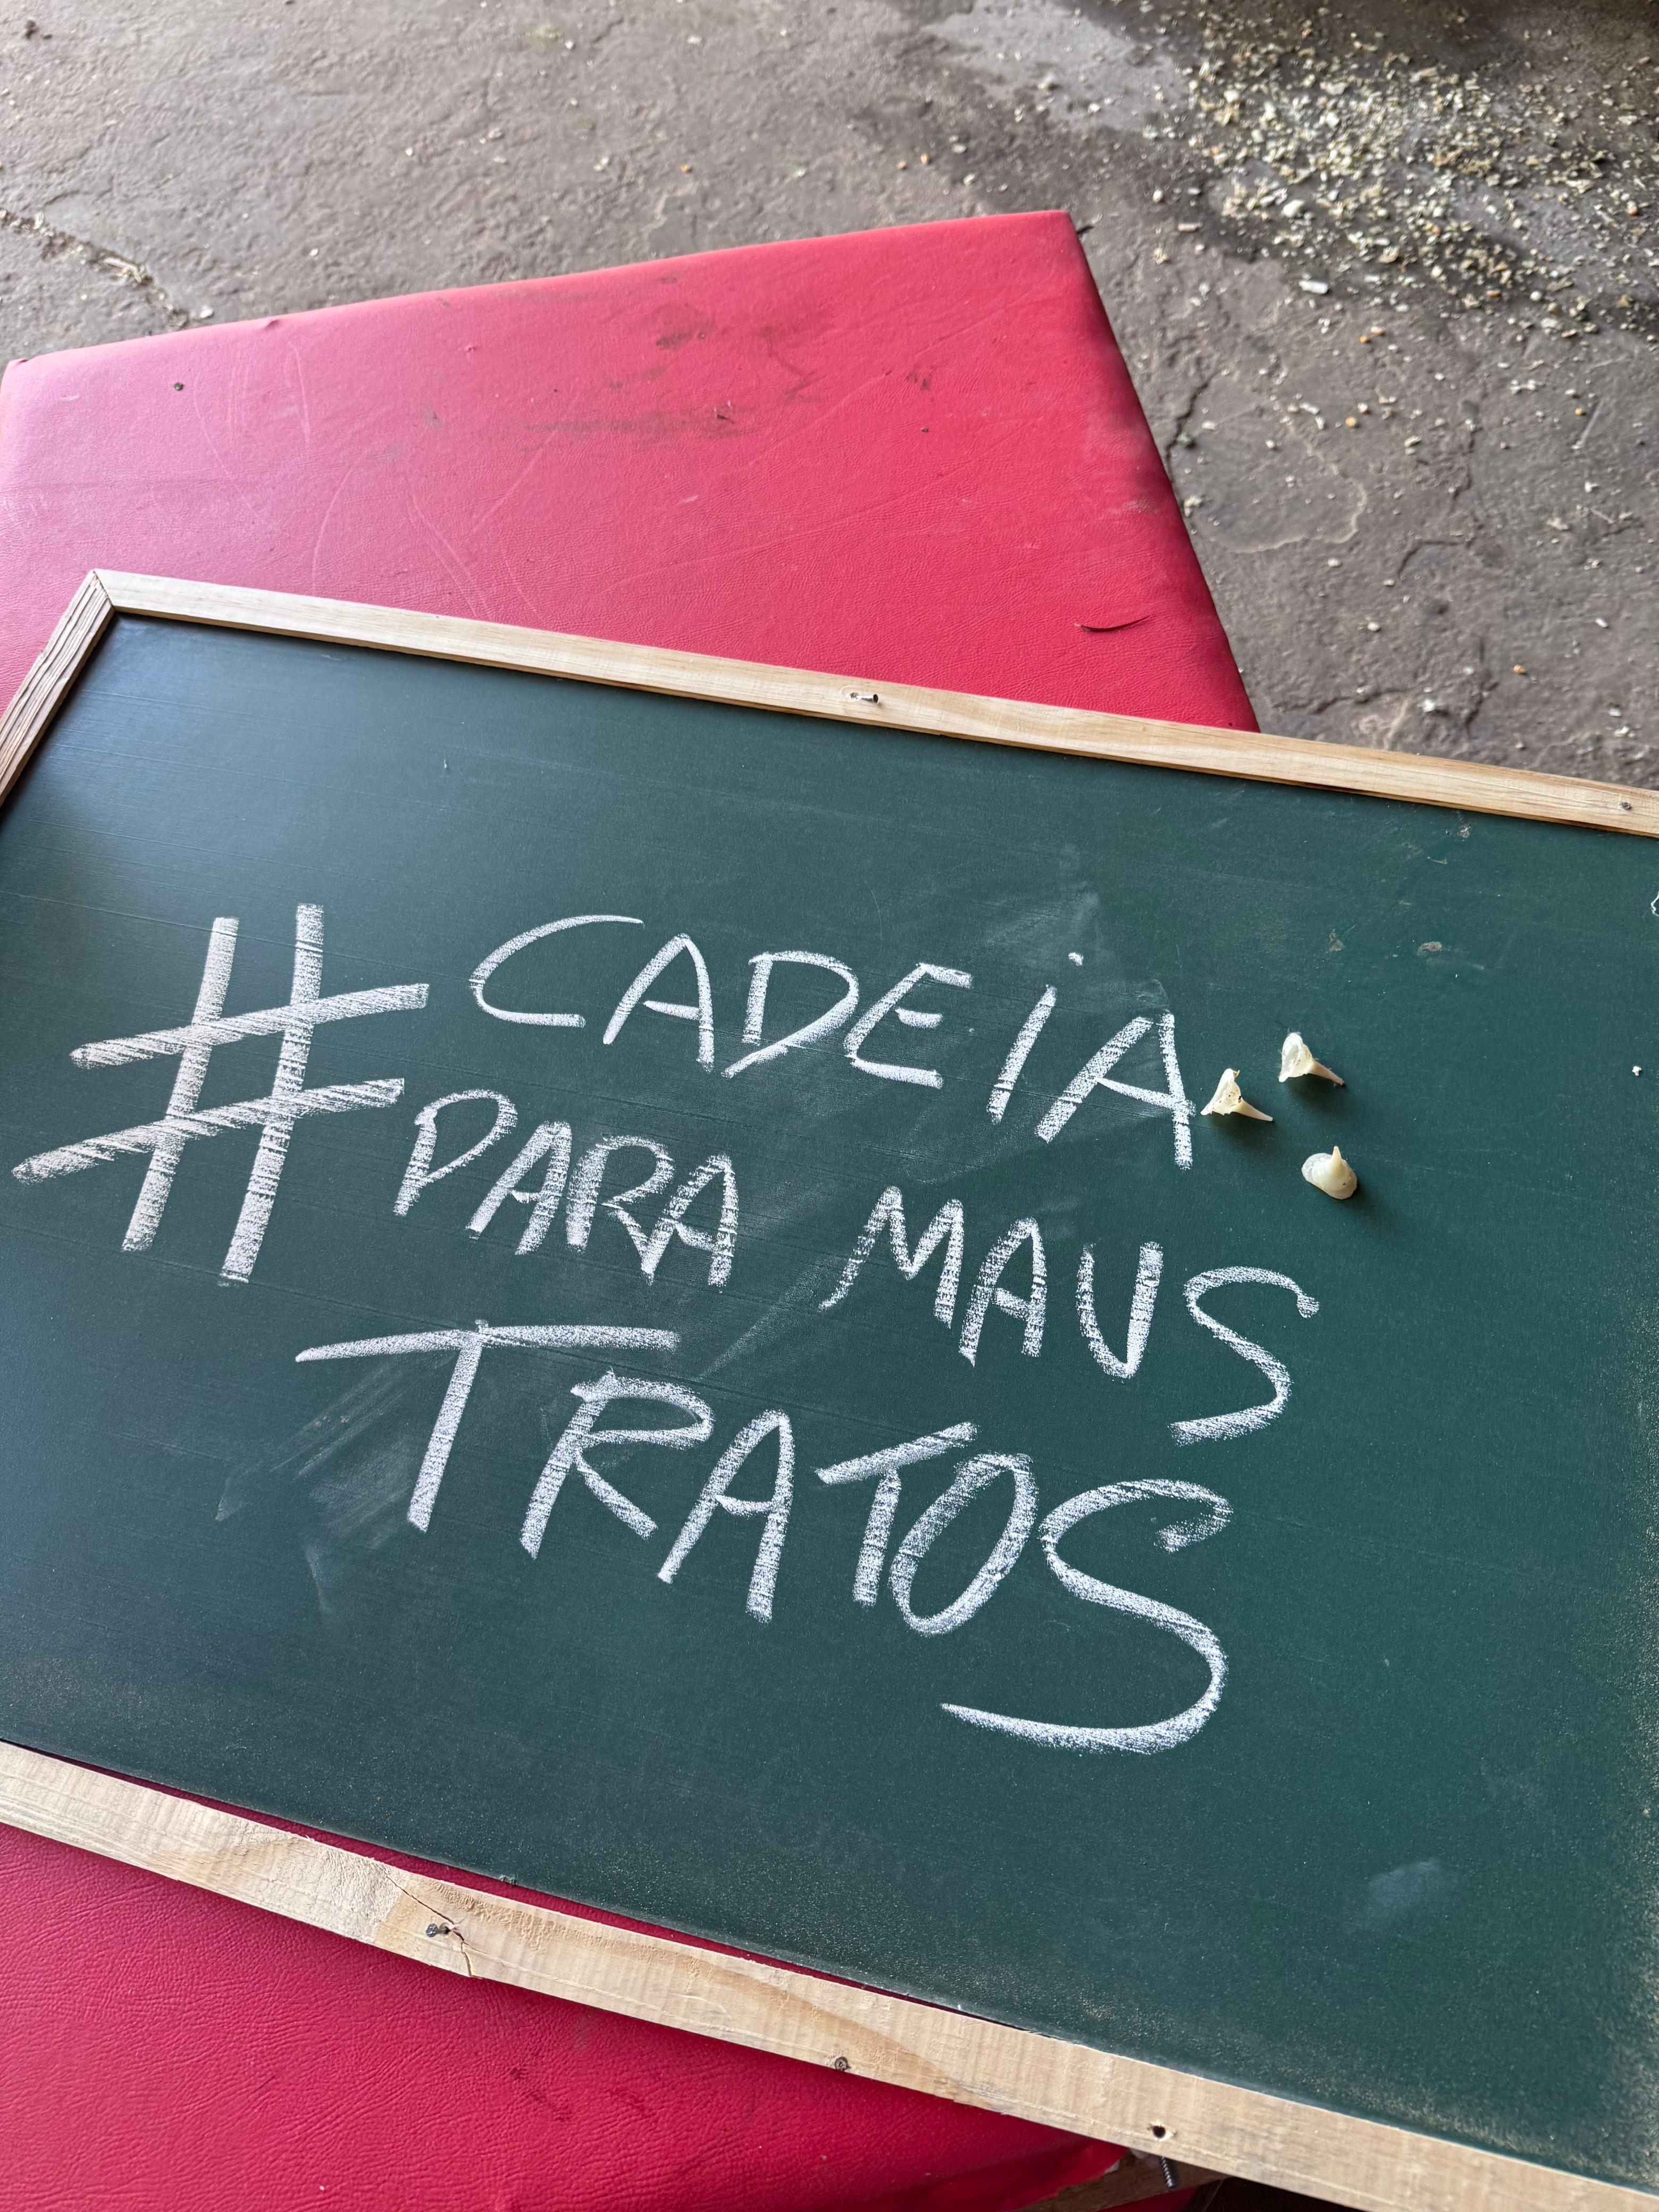 #CADEiA
PARA MAUS
TRATOS